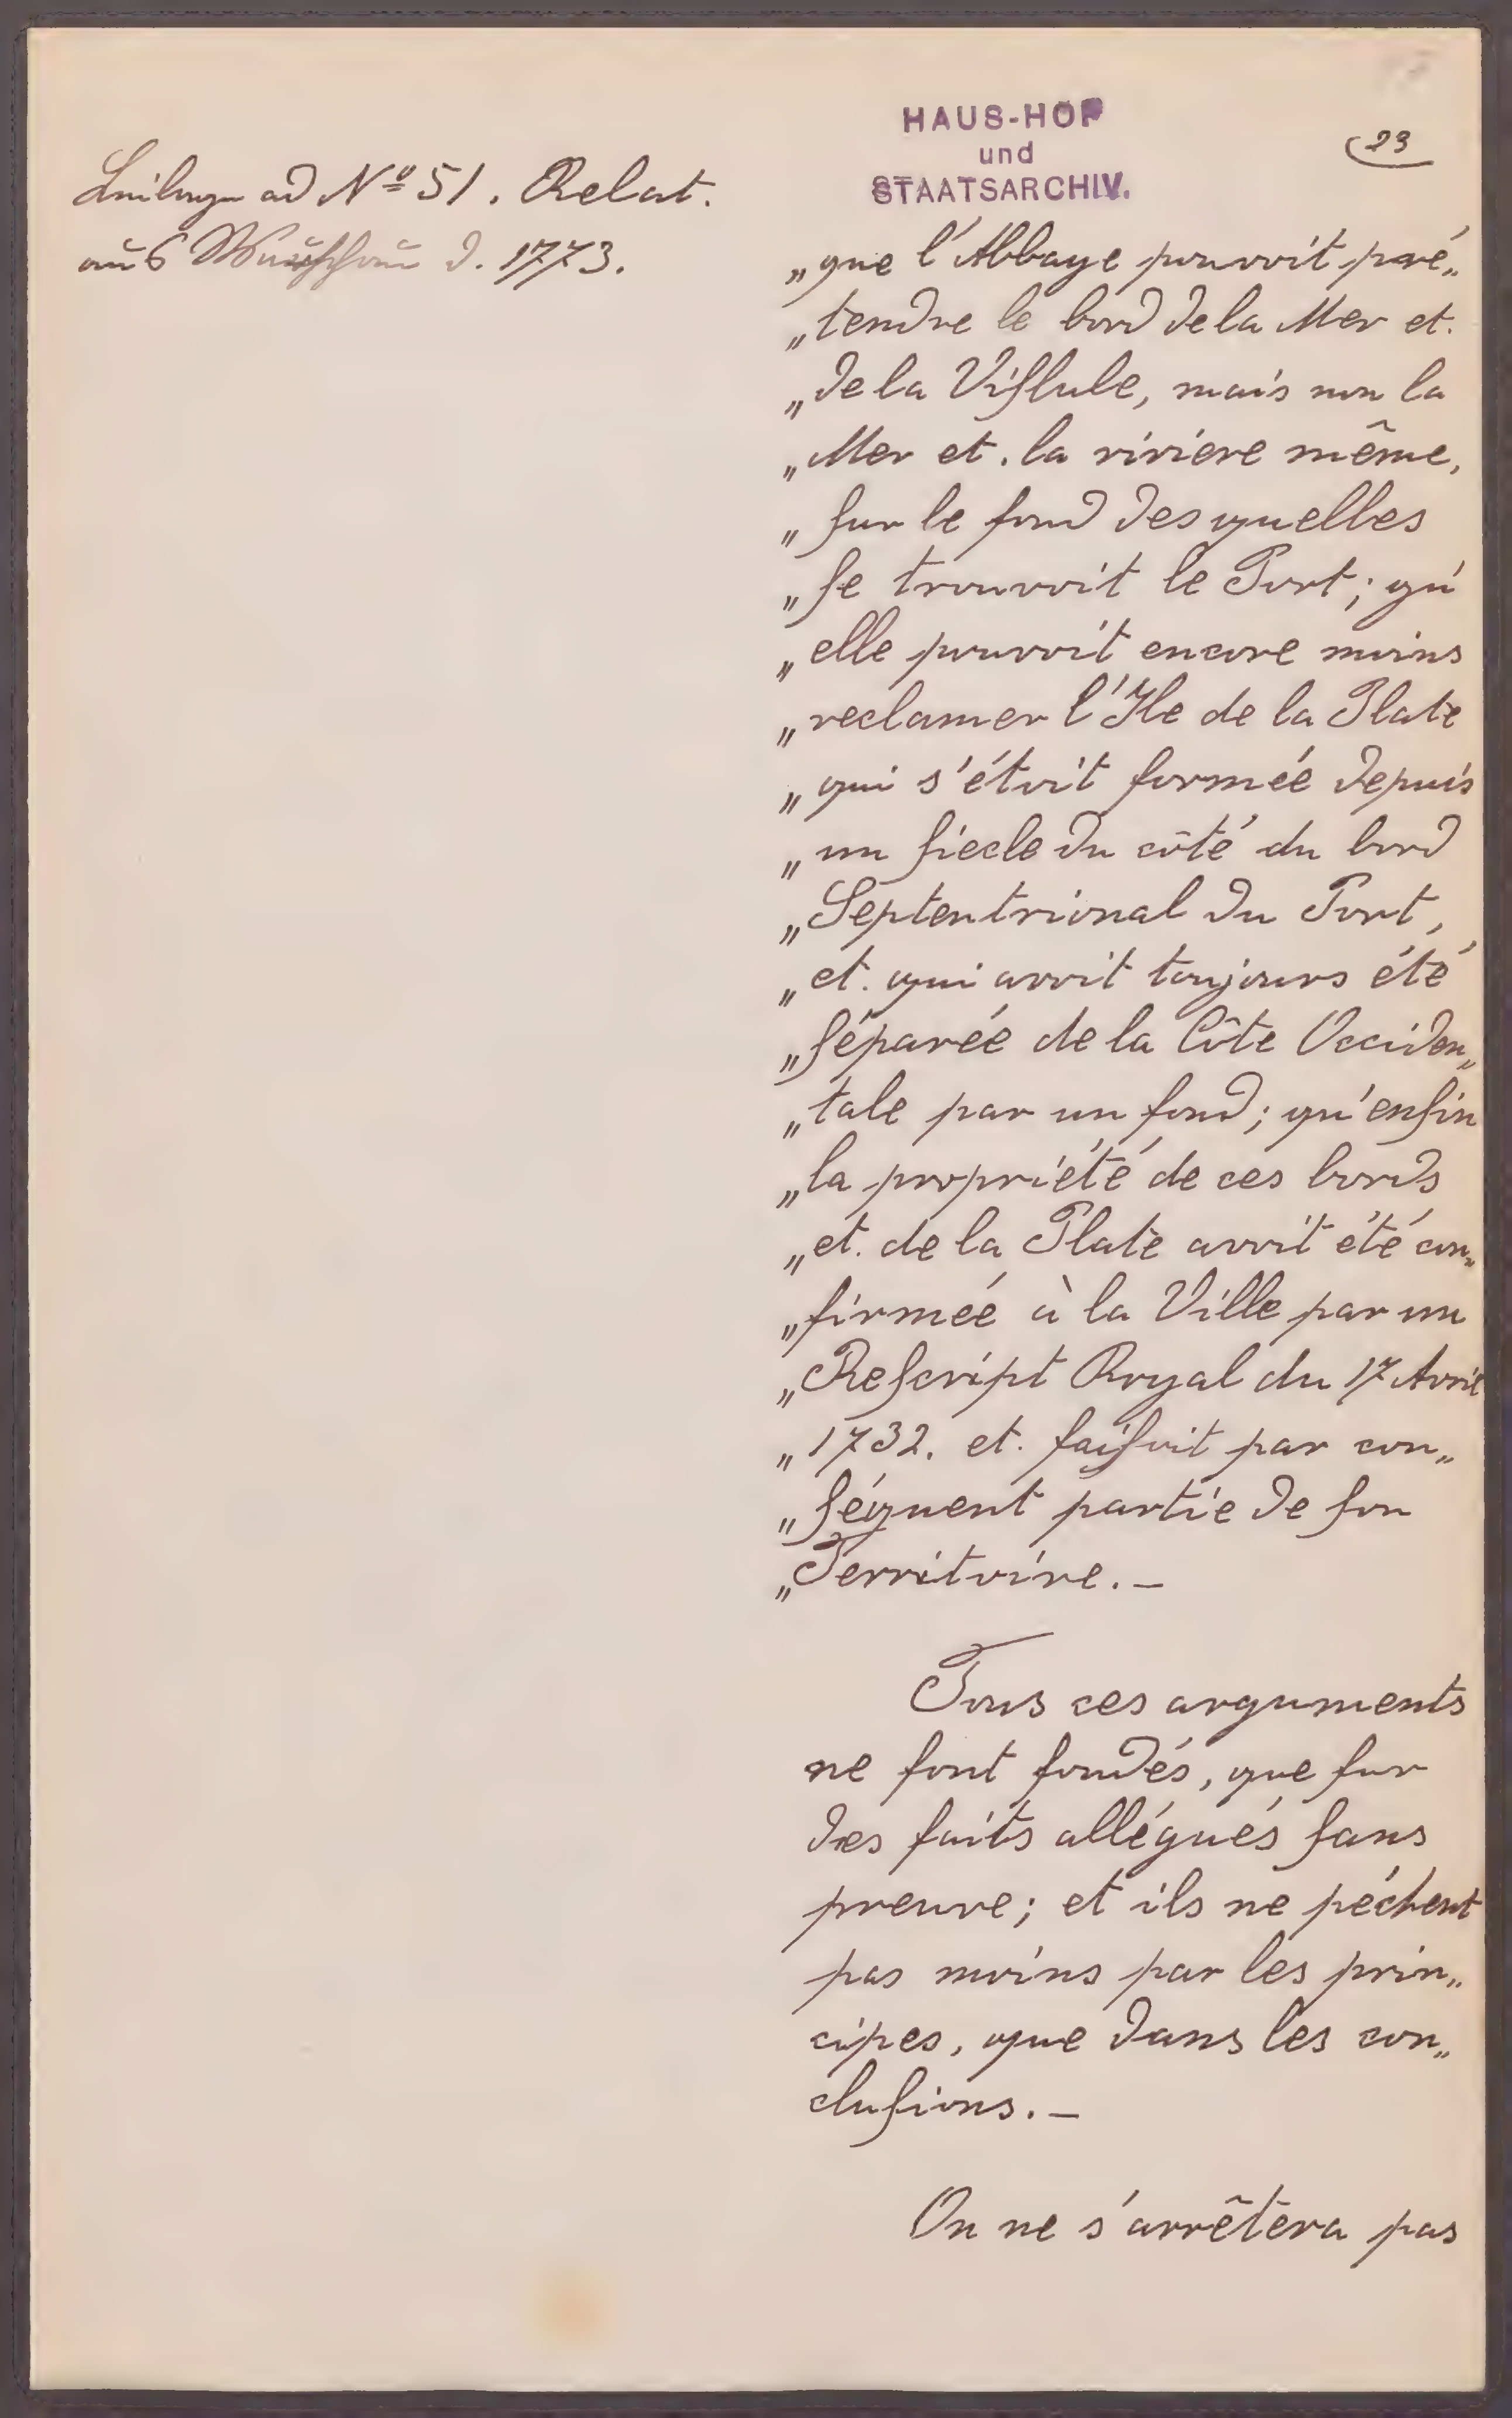 HAUS-HOF
und
STAATSARCHIV.
23
Beilage ad Nº 51. Relat.
aus Warschau d. 1773.
„que l'Abbaye pouvoit pré„
„tendre le bord de la Mer et.
„de la Viſtule, mais non la
„Mer et. la riviere même,
„ſur le fond des quelles
„ſe trouvoit le Port; qu'
„elle pouvoit encore moins
„reclamer l'Ile de la Plate
„qui s'étoit formée depuis
„un ſiecle du côté du bord
„Septentrional du Port,
„et. qui avoit toujours été
„ſéparée de la Côte Occiden„
„tale par un fond; qu'enfin
„la propriété de ces bords
„et. de la Plate avoit été con„
„firmée à la Ville par un
„Reſcript Royal du 17 Avril
„1732. et. faiſoit par con„
„ſéquent partie de ſon
„Territoire. —
Tous ces arguments
ne ſont fondés, que ſur
des faits allégués ſans
preuve; et ils ne péchent
pas moins par les prin„
cipes, que dans les con„
cluſions. —
On ne s'arrêtera pas